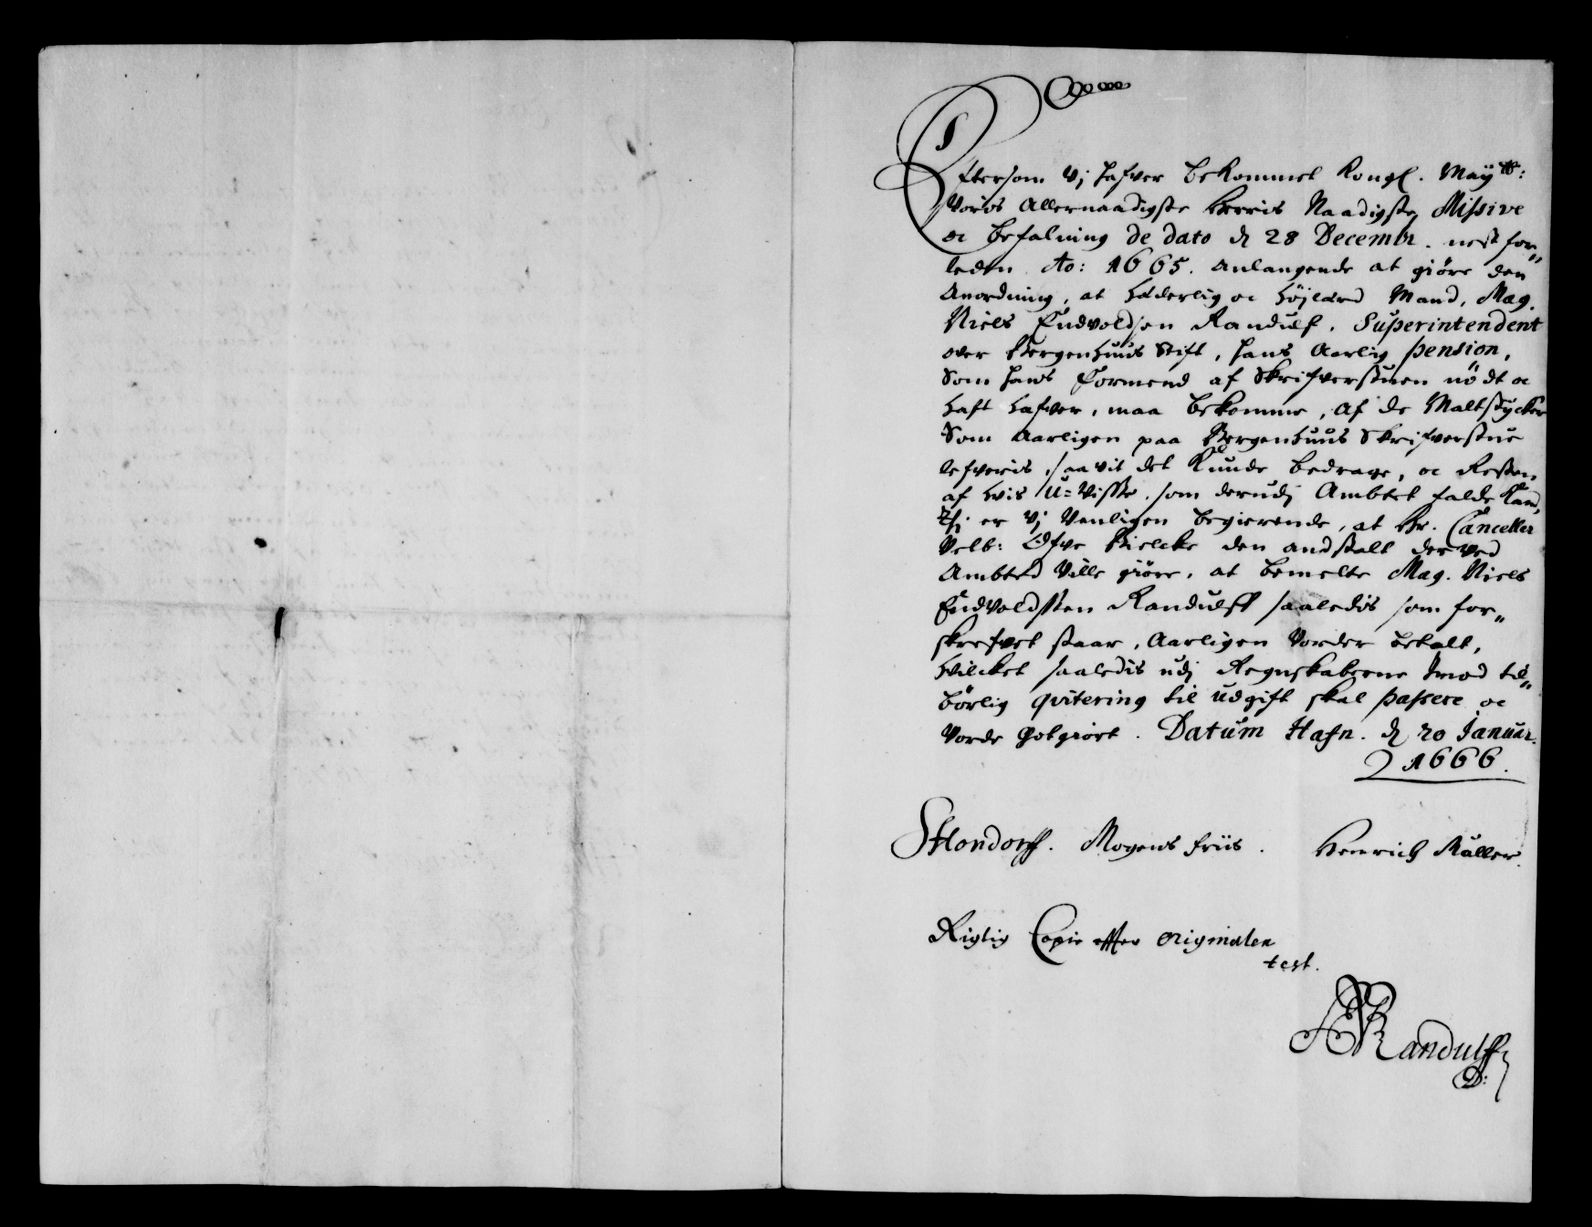 Eftersom Vj hafver bekommet Kongl. Mayᵗᵗˢ:
Voris Allernaadigste Herris Naadigste Missive
oc befalning de dato d 28 Decembr. nest for„
leden Ao: 1665. anlangende at giøre den
Anordning, at Hæderlig oc Højlærd Mand, Mag.
Niels Endvoldsen Randulf, Superintendent
over Bergenhuus Stift, hans Aarlig pension,
Som hans Formend af Skrifverstuen nødt oc
haft hafver, maa bekomme, af de Maltstycker
Som Aarligen paa Bergenhuus Skrifverstue
lefveris, saa vit det Kunde bedrage, oc Resten,
af hvis U=Visse, som derudj Ambtet falde Kand,
Thj er Vj Venligen begierende, at Hr. Canceller
Velb: Ofve Bielcke den andstalt der ved
Ambted Ville giøre, at bemelte Mag. Niels
Endvoldssen Randulff saaledis som for„
skrefvet staar, Aarligen Vorder betalt,
Hvilcket saaledis udj Regnskaberne Imod til„
børlig qvitering til udgift skal passere oc
Vorde gotgiort. Datum Hafn. d 20 Januar.
1666.
SHondorff. Mogens Friis. Henrich Müller.
Rigtig Copie effter originalen
test.
Randulff